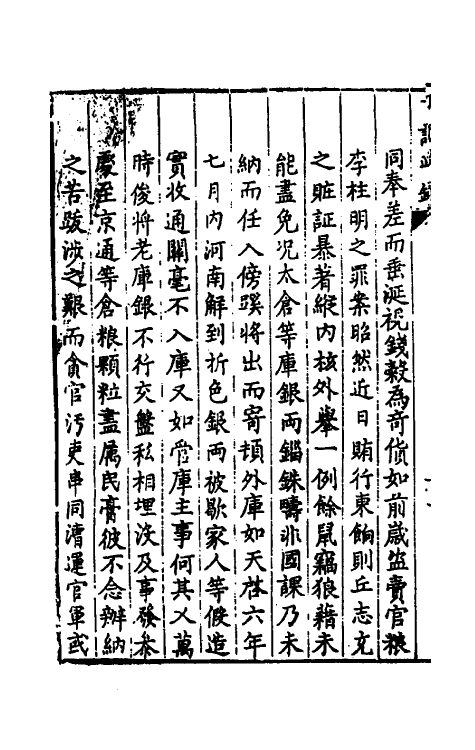 同奉差而垂涎視錢穀為奇貨如前歲盜賣官粮
李柱明之罪案昭然近日賄行東餉則丘志充
之贓証暴著縱內核外舉一例餘鼠竊狼藉未
能盡免況太倉等庫銀両錙銖疇非國課乃未
納而任入傍蹊將出而寄頓外庫如天啓六年
七月內河南解到折色銀両被歇家人等假造
實收通關毫不入庫又如管庫主事何其义萬
時俊將老庫銀不行交盤私相埋没及事發叅
處至京通等倉粮顆粒盡属民膏彼不念辦納
之苦跋涉之艱而貪官汚吏串同漕運官軍或